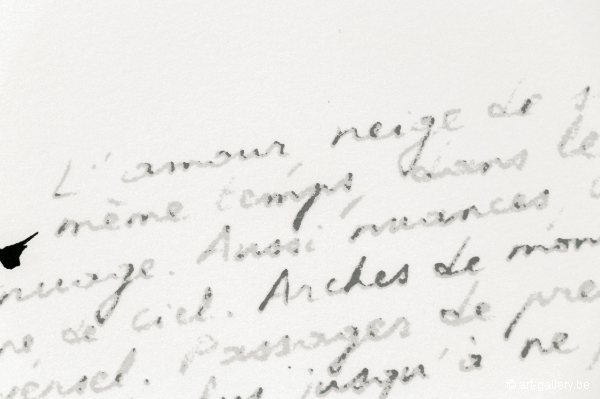 L'amour neige de
même temps, dans le
nuage. Aussi nuances
de ciel. Arches de
Passages de
jusqu'à ne
© art-gallery.be